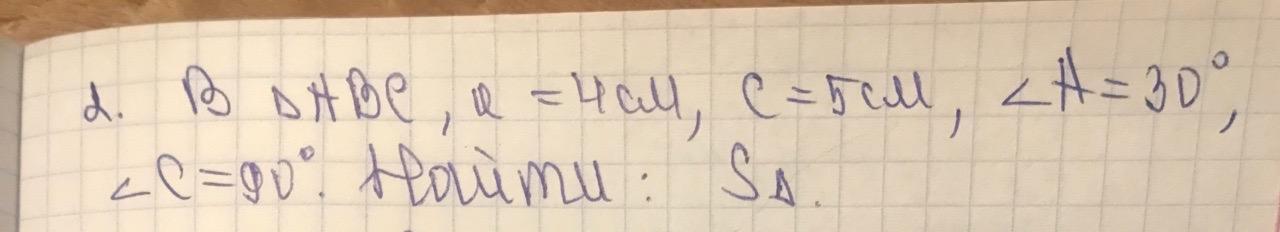 2. В △ABC, a = 4см, c = 5см, ∠A = 30°,
∠C = 90°. Найти: S△.